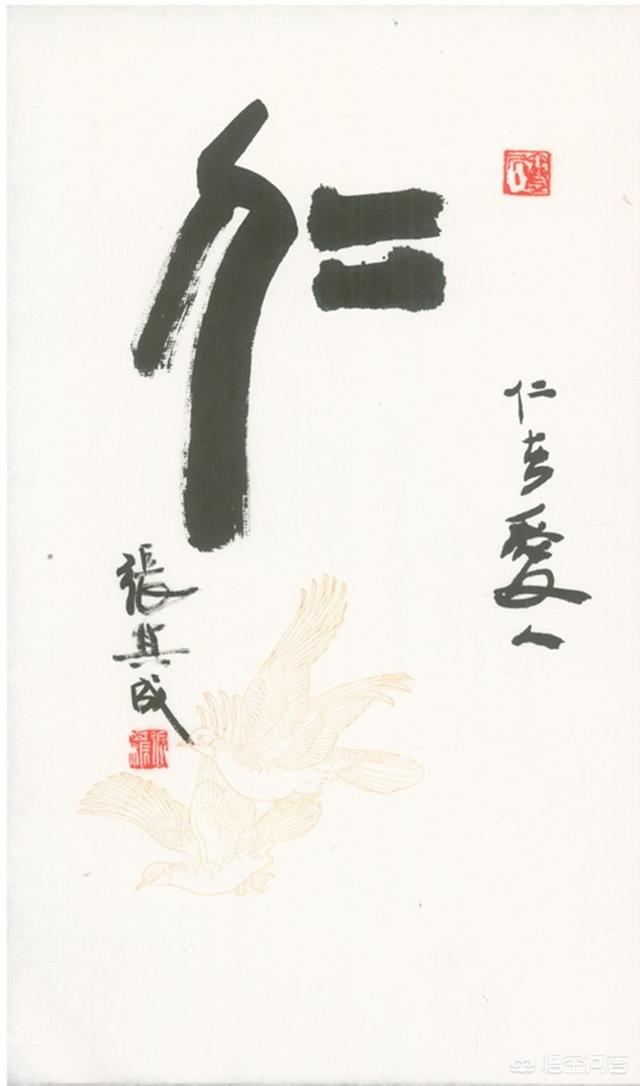 仁
仁者愛人
張其成
悟空问答